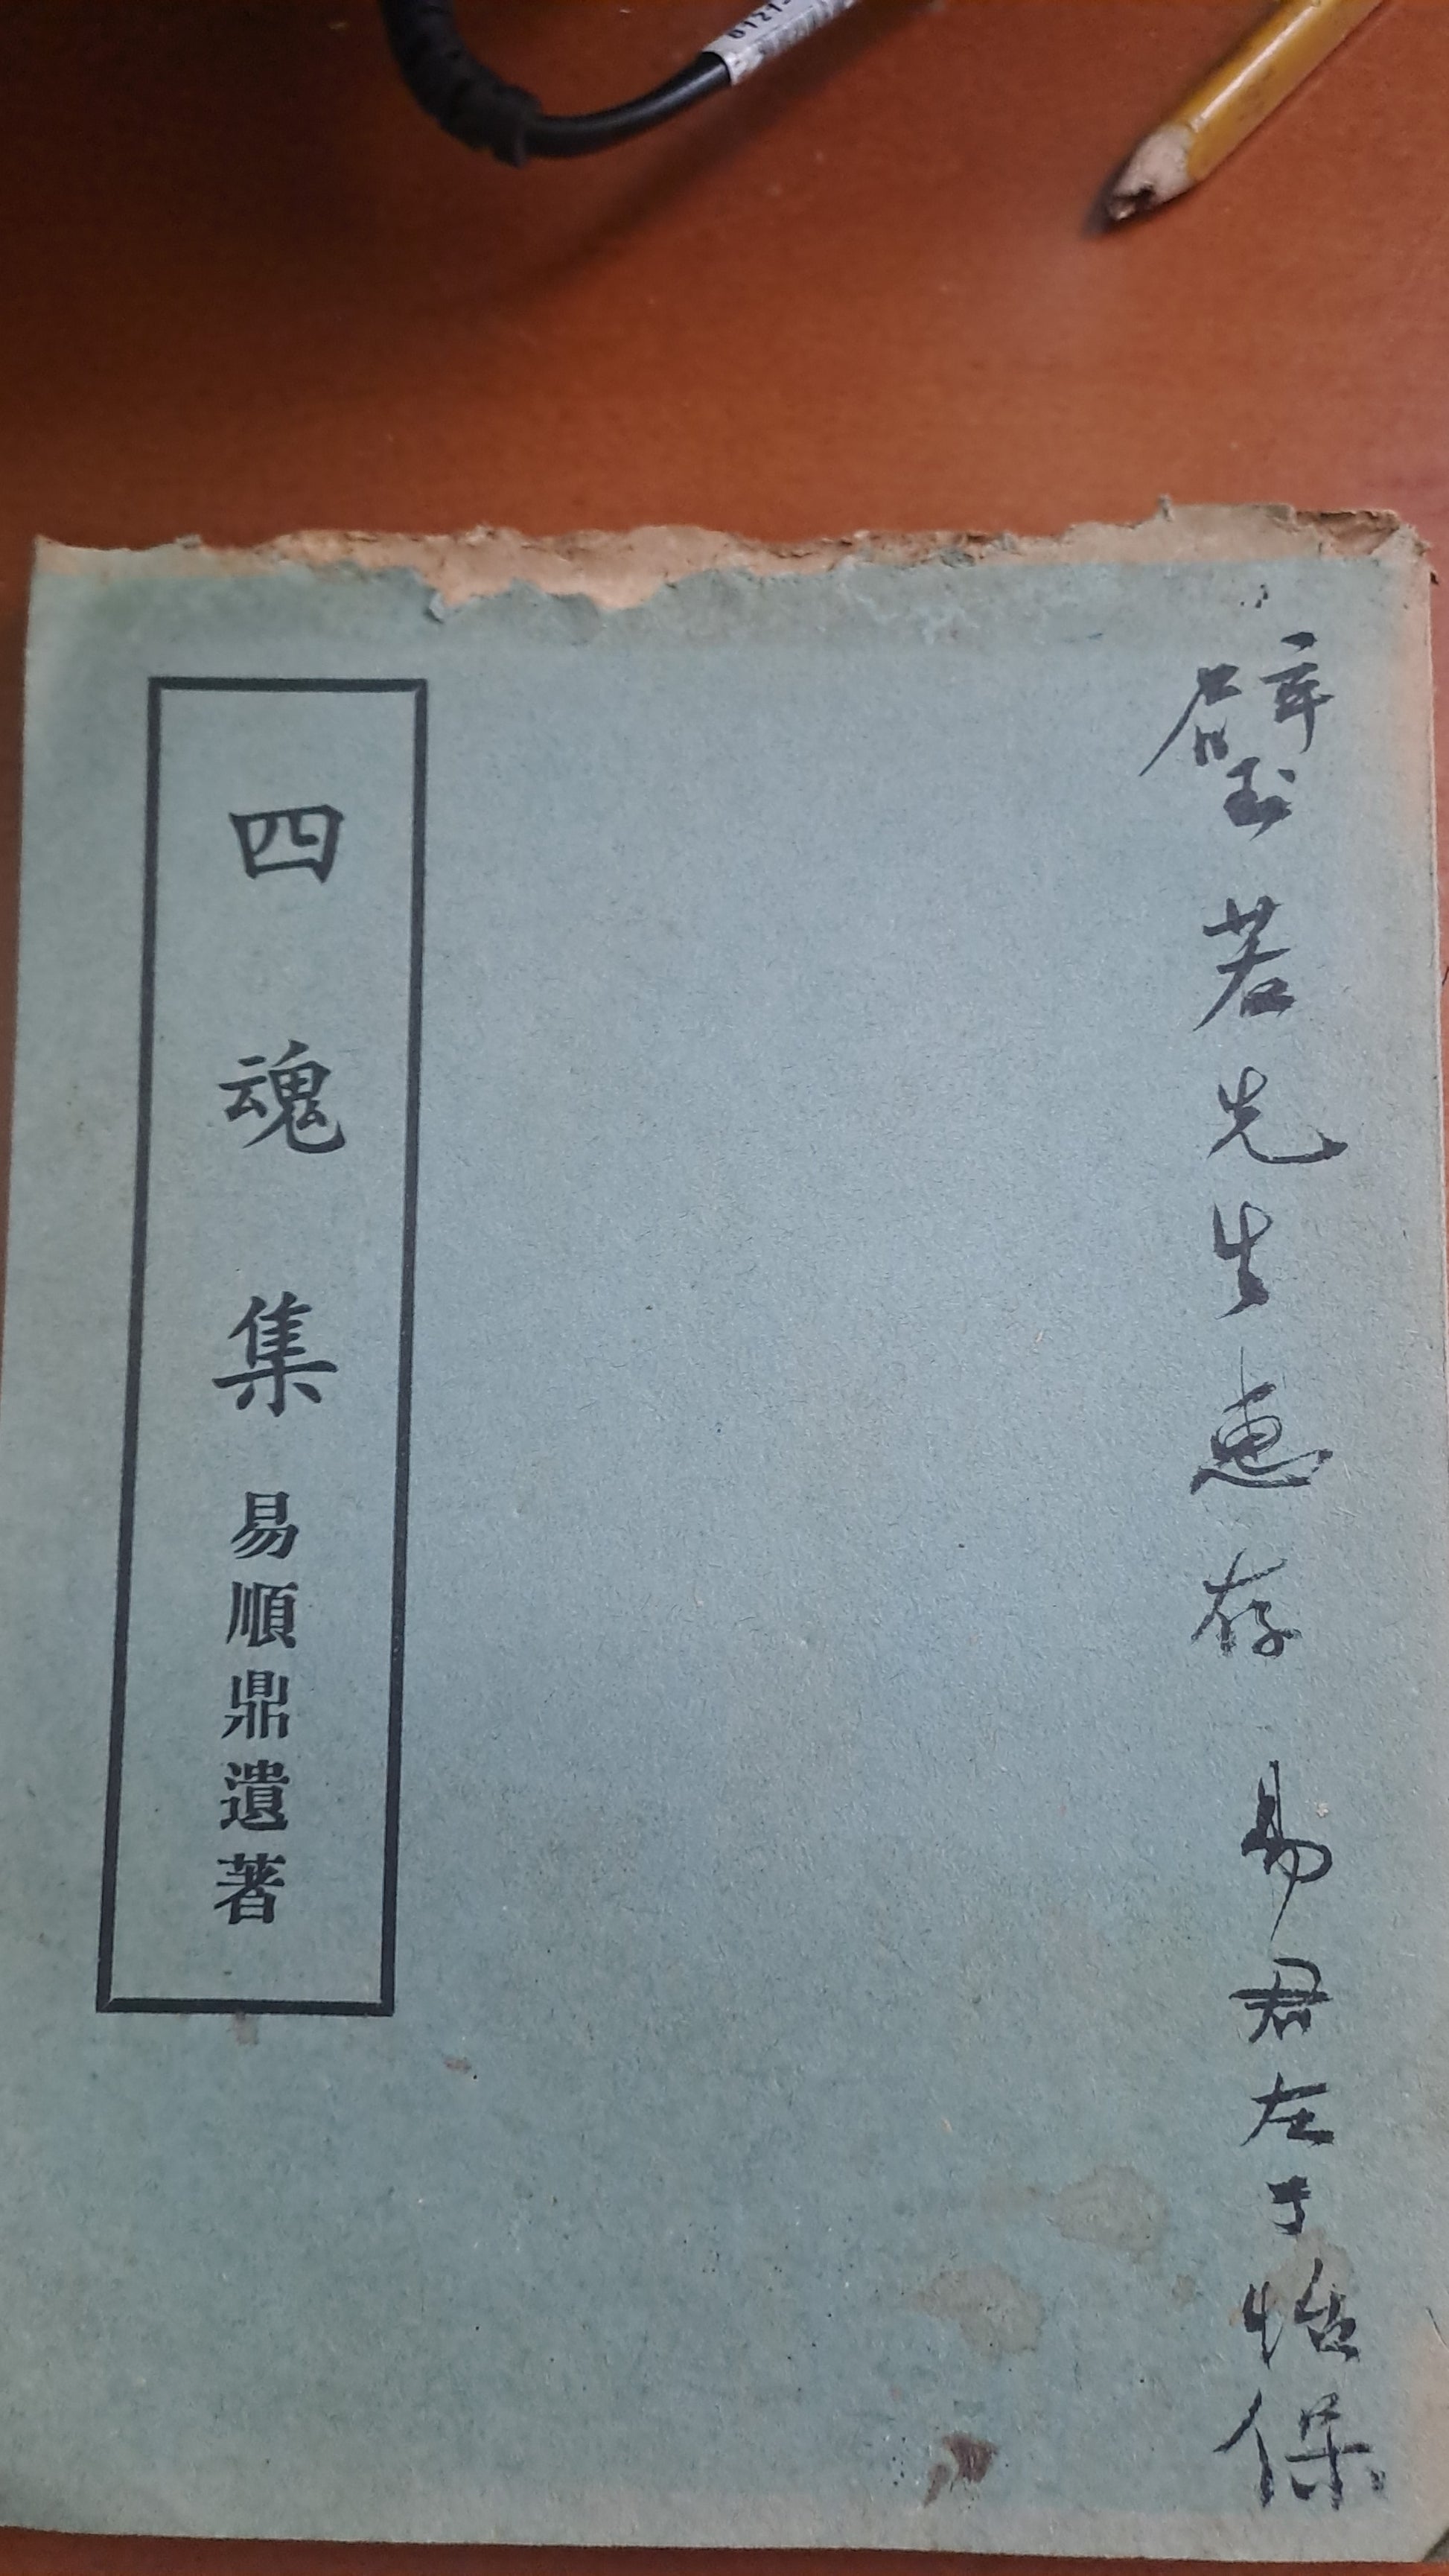 璧若先生惠存 易君左于怡保
四魂集 易順鼎遺著